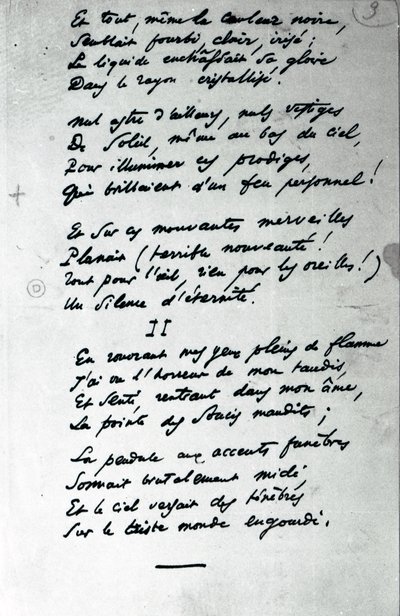 3
Et tout, même la couleur noire,
Semblait fourbi, clair, irisé;
Le liquide enchâssait sa gloire
Dans le rayon cristallisé.
Nul astre d'ailleurs, nuls vestiges
De Soleil, même au bas du ciel,
Pour illuminer ces prodiges,
Qui brillaient d'un feu personnel!
Et sur ces mouvantes merveilles
Planait (terrible nouveauté!
Tout pour l'œil, rien pour les oreilles!)
Un Silence d'éternité.
D
II
En rouvrant mes yeux pleins de flamme
J'ai vu l'horreur de mon taudis,
Et senti, rentrant dans mon âme,
La pointe des Soucis maudits;
La pendule aux accents funèbres
Sonnait brutalement midi,
Et le ciel versait des ténèbres
Sur le triste monde engourdi.